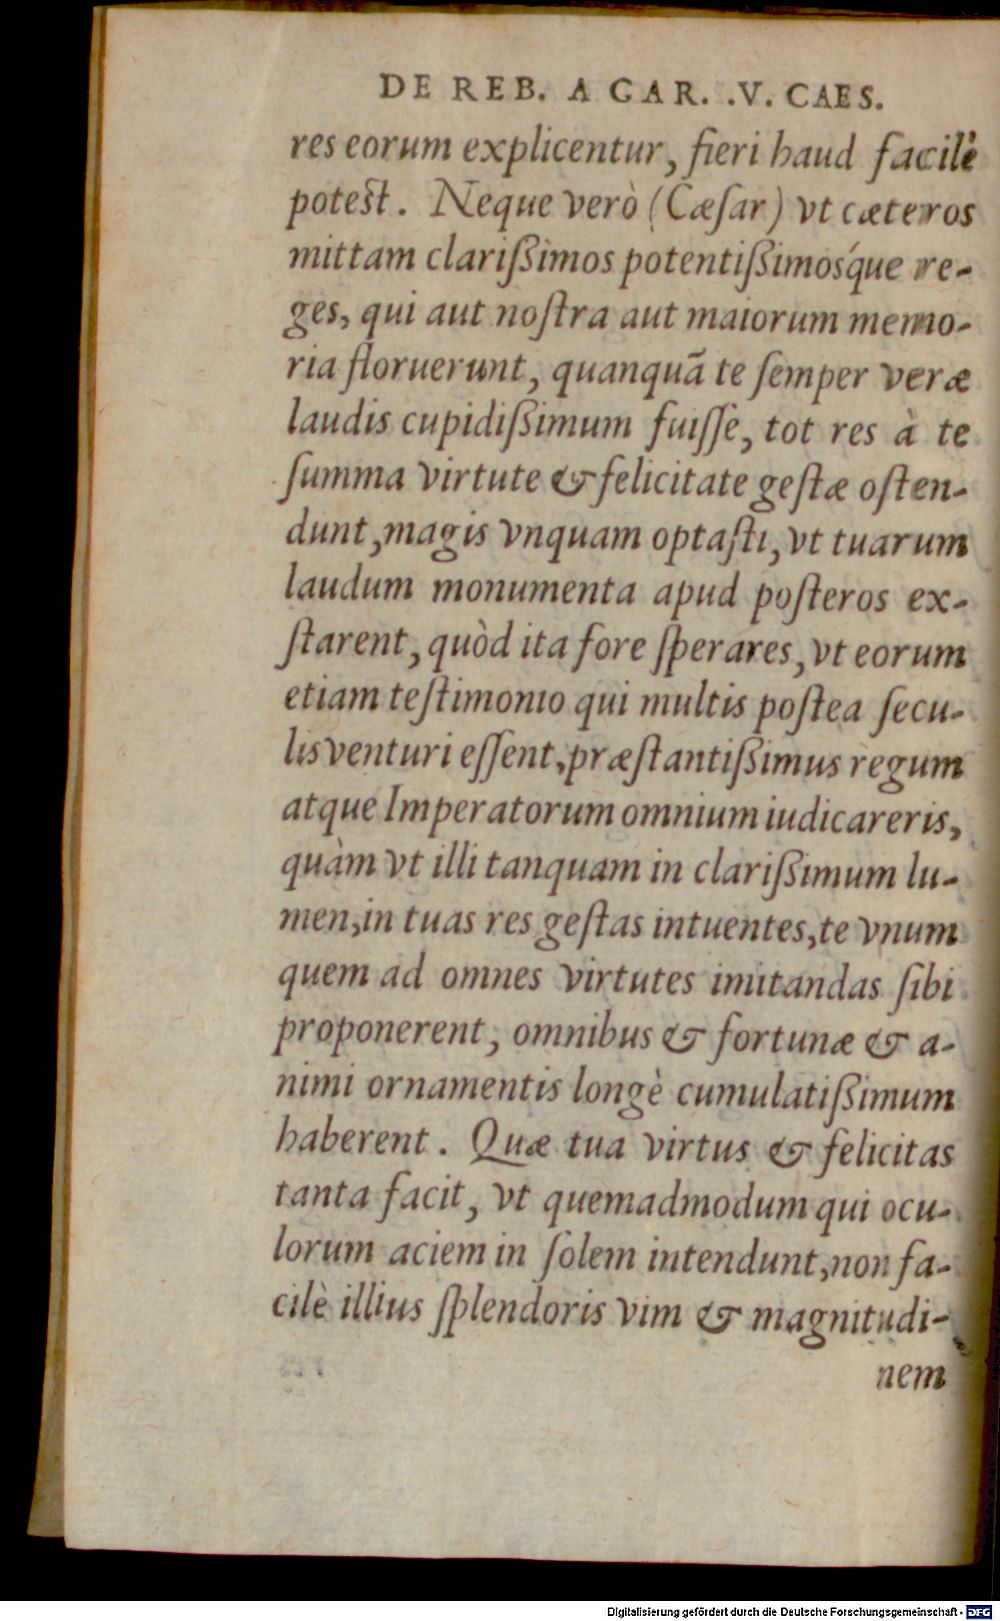 DE REB. A CAR. .V. CAES.
res eorum explicentur, fieri haud facilè
potest. Neque verò (Cæſar) vt cæteros
mittam clariſſimos potentiſſimosq́ue re-
ges, qui aut noſtra aut maiorum memo-
ria floruerunt, quanquã te ſemper veræ
laudis cupidiſſimum fuiſſe, tot res à te
ſumma virtute & felicitate geſtæ oſten-
dunt, magis vnquam optaſti, vt tuarum
laudum monumenta apud poſteros ex-
ſtarent, quòd ita fore ſperares, vt eorum
etiam teſtimonio qui multis poſtea ſecu-
lis venturi eſſent, præſtantiſſimus regum
atque Imperatorum omnium iudicareris,
quàm vt illi tanquam in clariſſimum lu-
men, in tuas res geſtas intuentes, te vnum
quem ad omnes virtutes imitandas ſibi
proponerent, omnibus & fortunæ & a-
nimi ornamentis longè cumulatiſſimum
haberent. Quæ tua virtus & felicitas
tanta facit, vt quemadmodum qui ocu-
lorum aciem in ſolem intendunt, non fa-
cilè illius ſplendoris vim & magnitudi-
nem
Digitalisierung gefördert durch die Deutsche Forschungsgemeinschaft - DFG